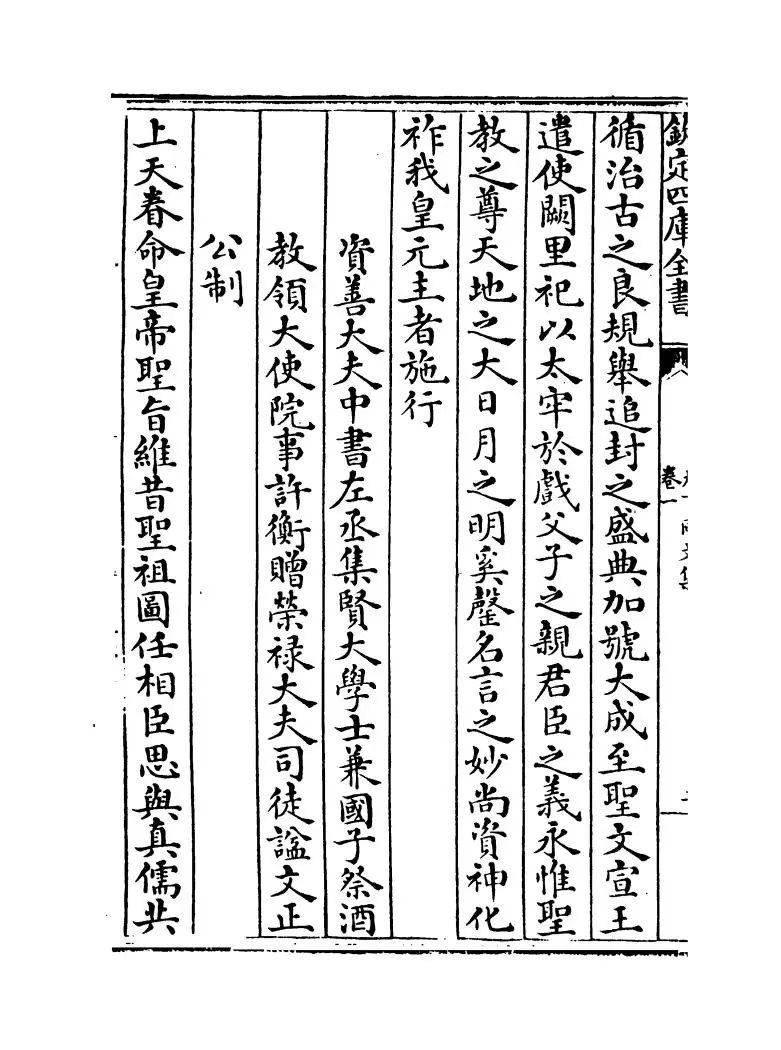 欽定四庫全書
卷一
循治古之良規舉追封之盛典加號大成至聖文宣王
遣使闕里祀以太牢於戲父子之親君臣之義永惟聖
教之尊天地之大日月之明奚罄名言之妙尚資神化
祚我皇元主者施行
資善大夫中書左丞集賢大學士兼國子祭酒
教領大使院事許衡贈榮祿大夫司徒諡文正
公制
上天眷命皇帝聖旨維昔聖祖圖任相臣思與真儒共